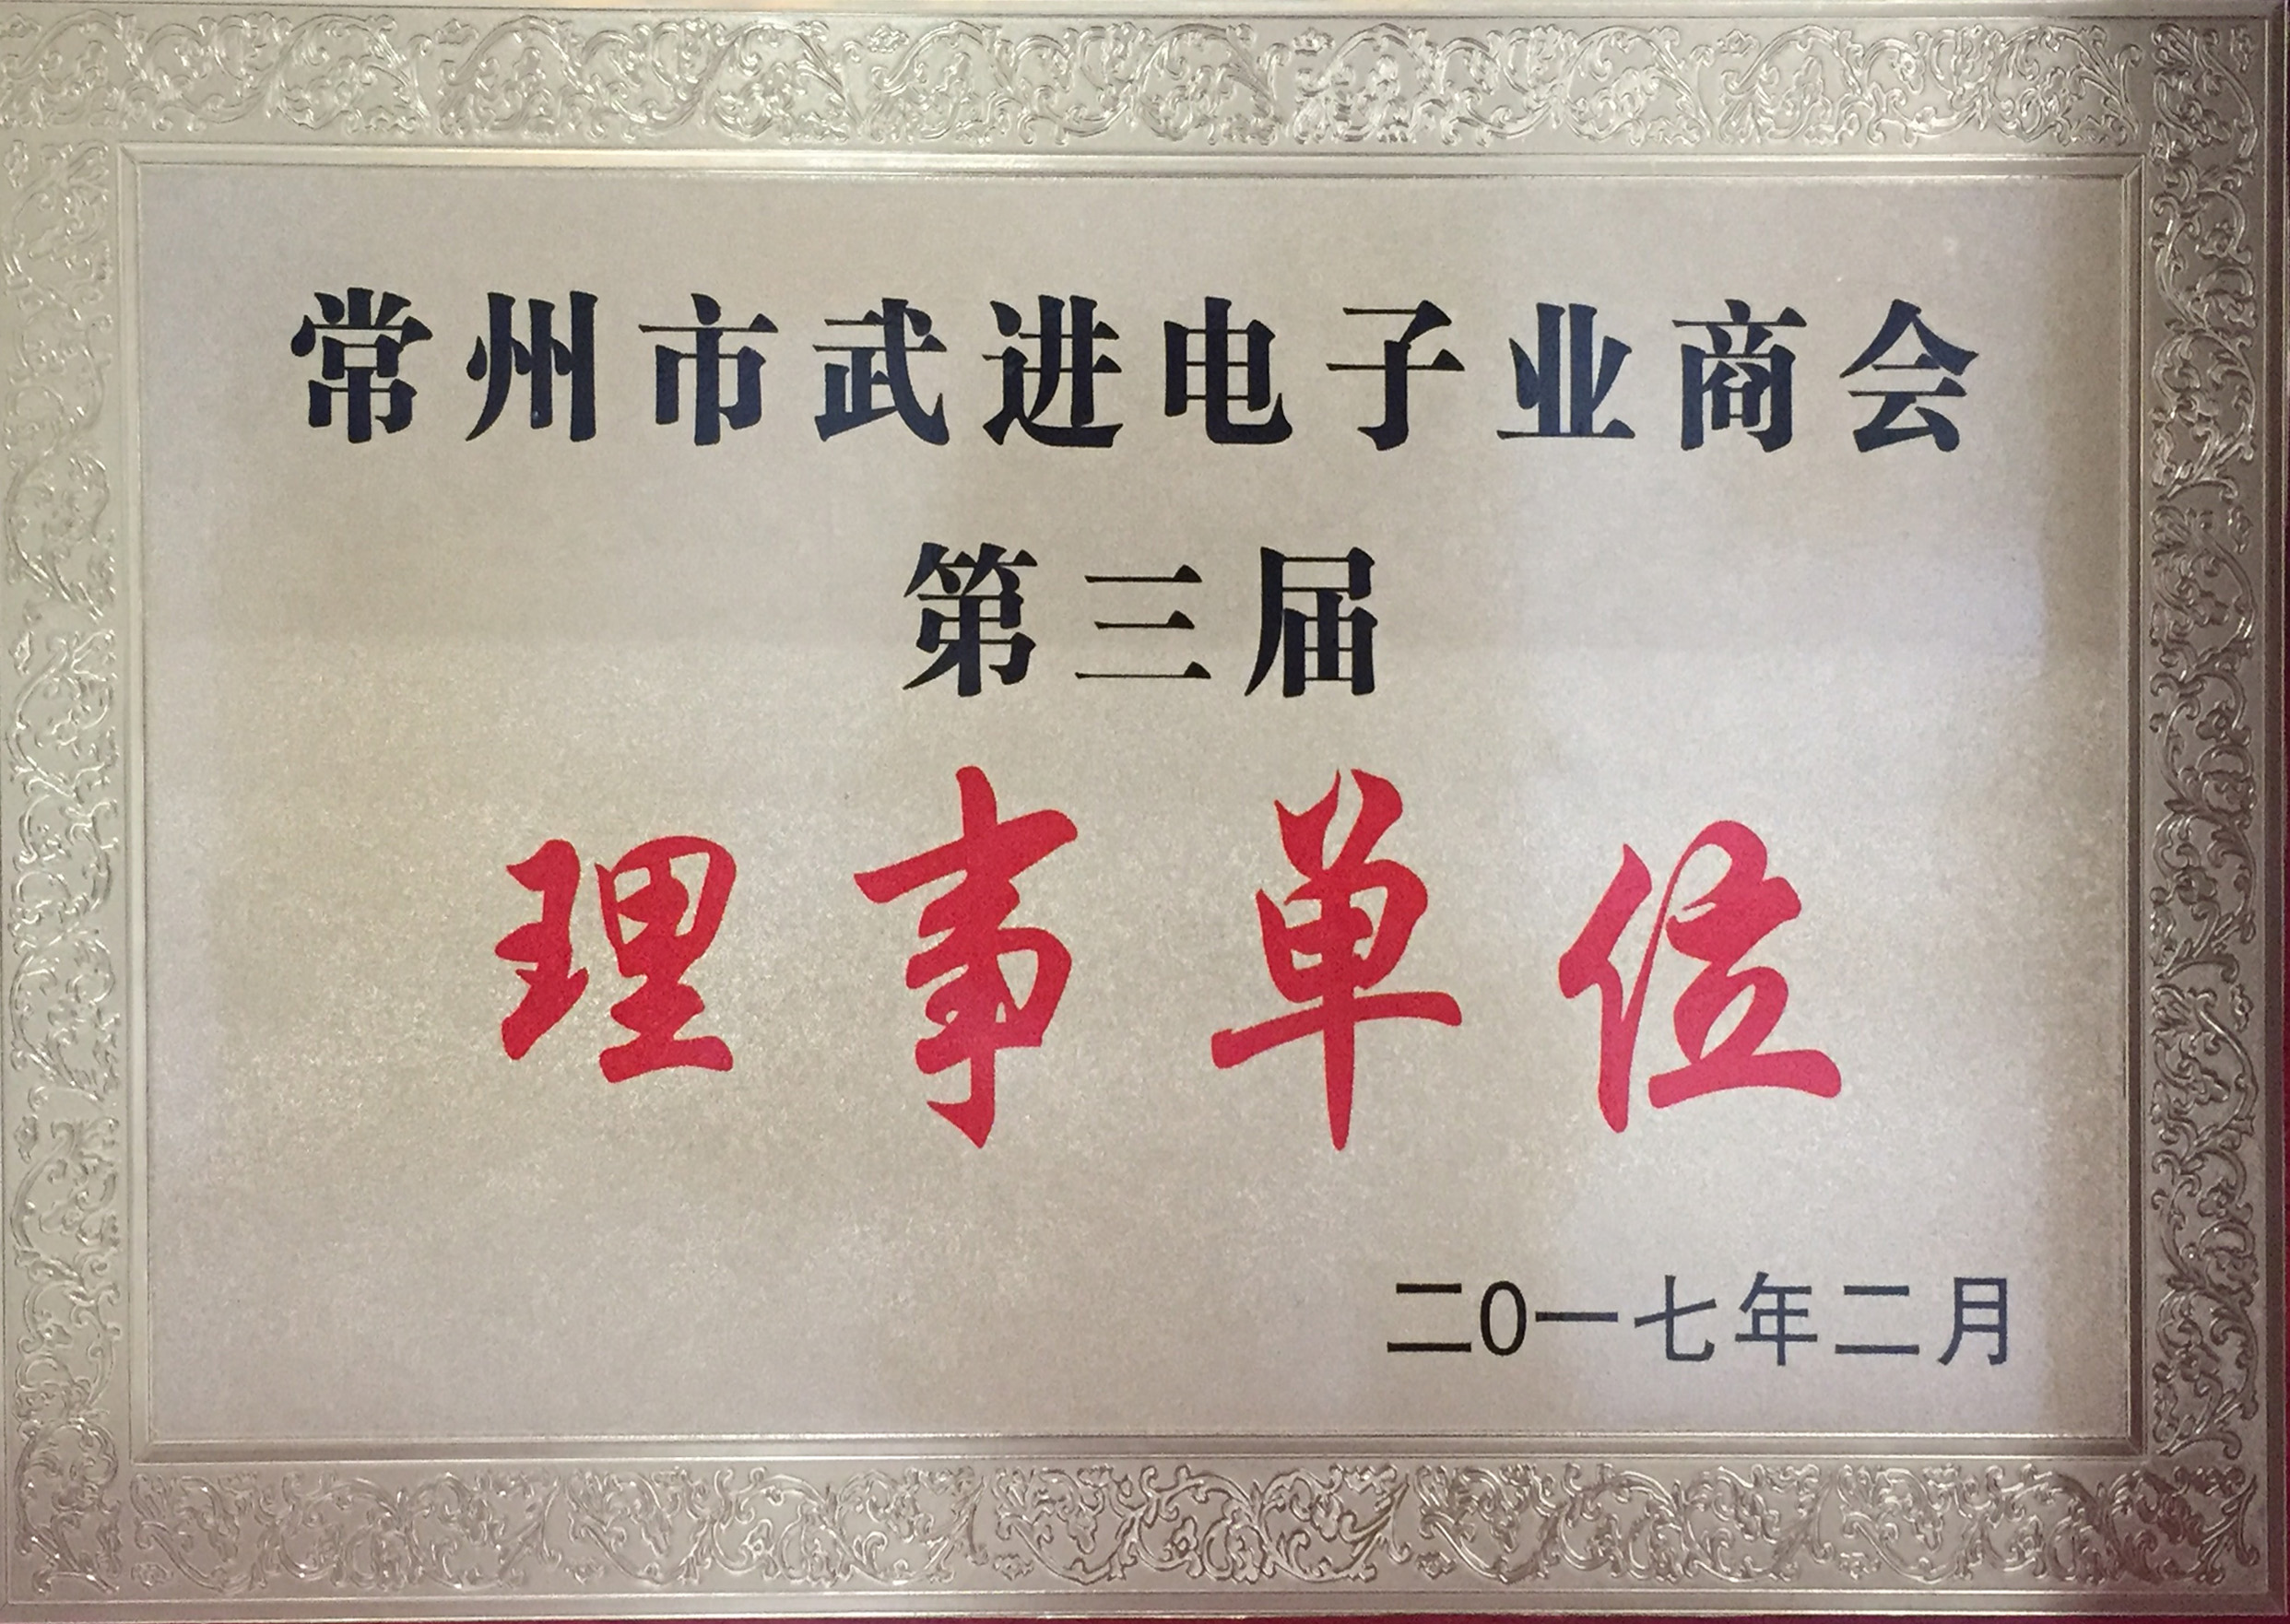 常州市武进电子业商会
第三届
理事单位
二0一七年二月